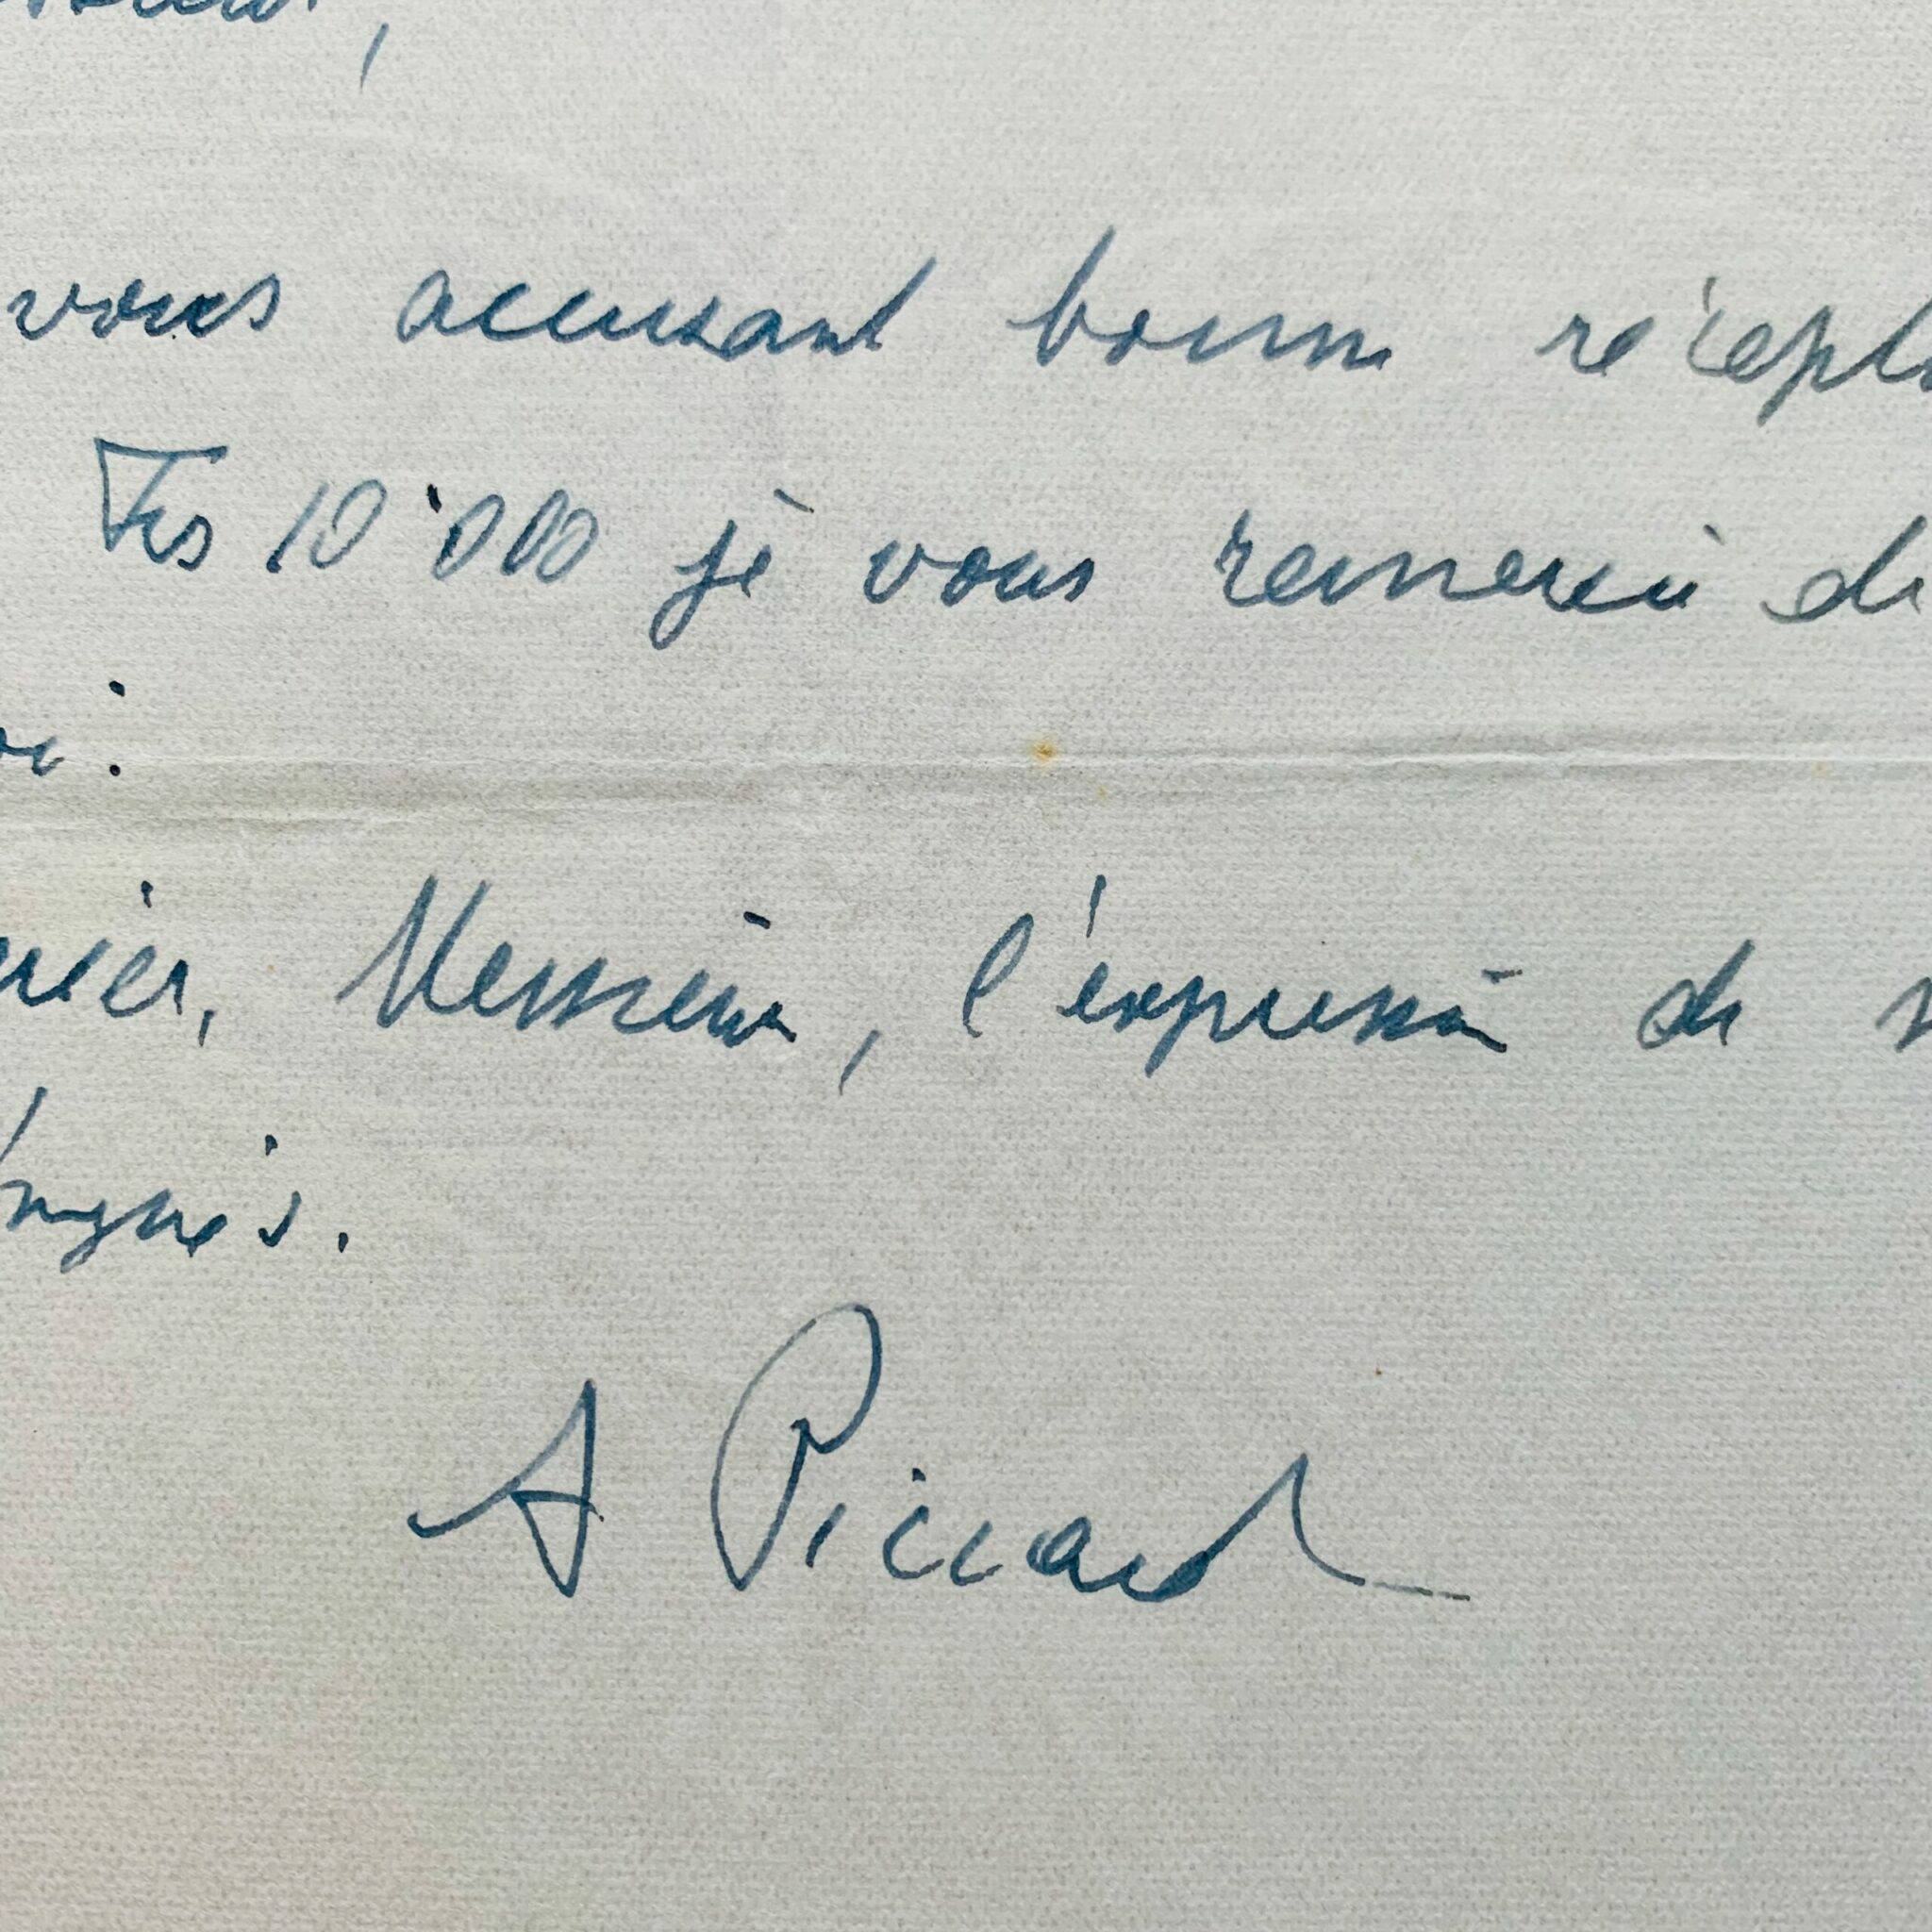 vous accusant bonne récept
Frs 10'000 je vous remercie de
oi.
Messieurs, l'expression de
ingués.
A Piccard